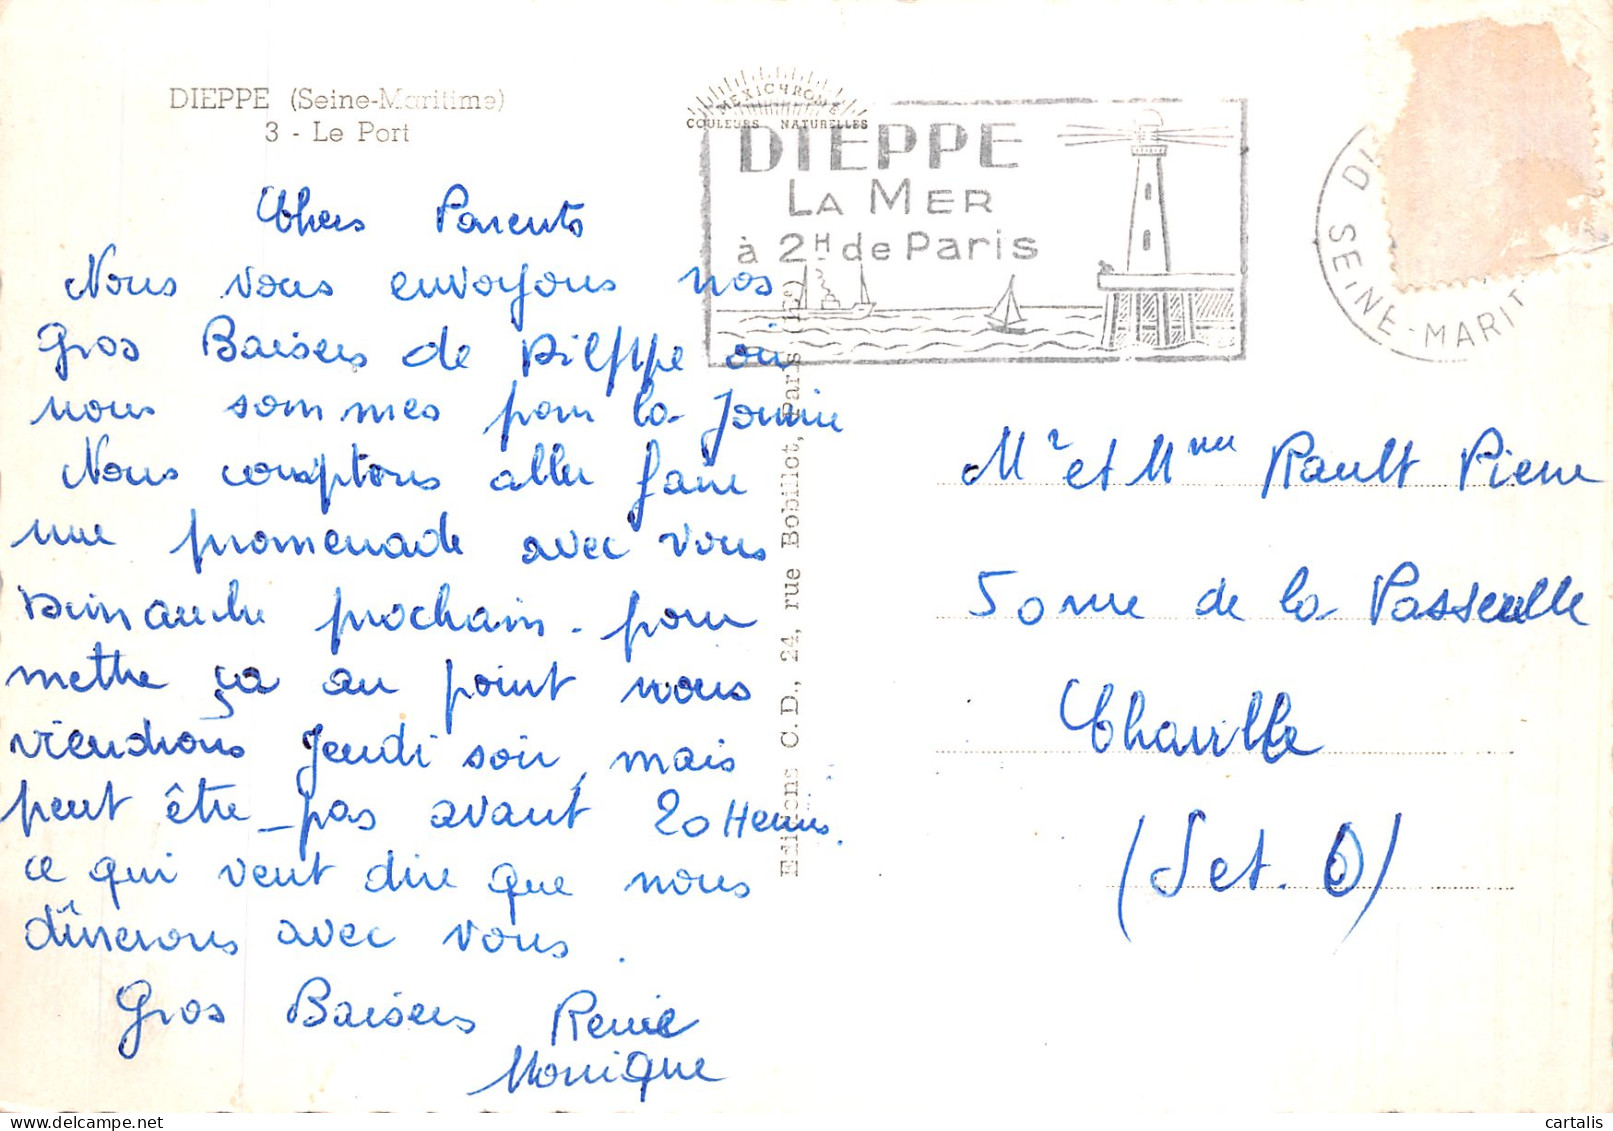 DIEPPE (Seine-Maritime)
3 - Le Port
Chers Parents
Nous vous envoyons nos
Gros Baisers de Dieppe ou
nous sommes pour la Journée
Nous comptons aller faire
une promenade avec vous
Dimanche prochain. pour
mettre ça au point nous
viendrons Jeudi soir, mais
peut être pas avant 20 Heures.
ce qui veut dire que nous
dînerons avec vous.
Gros Baisers Renée
Monique
Editions C. D., 24, rue Bobillot, Paris (13e)
MEXICHROME
COULEURS NATURELLES
DIEPPE
LA MER
à 2H de Paris
SEINE-MARIT
Mr et Mme Rault Pierre
50 rue de la Passerelle
Chaville
(S et. O)
cartalis